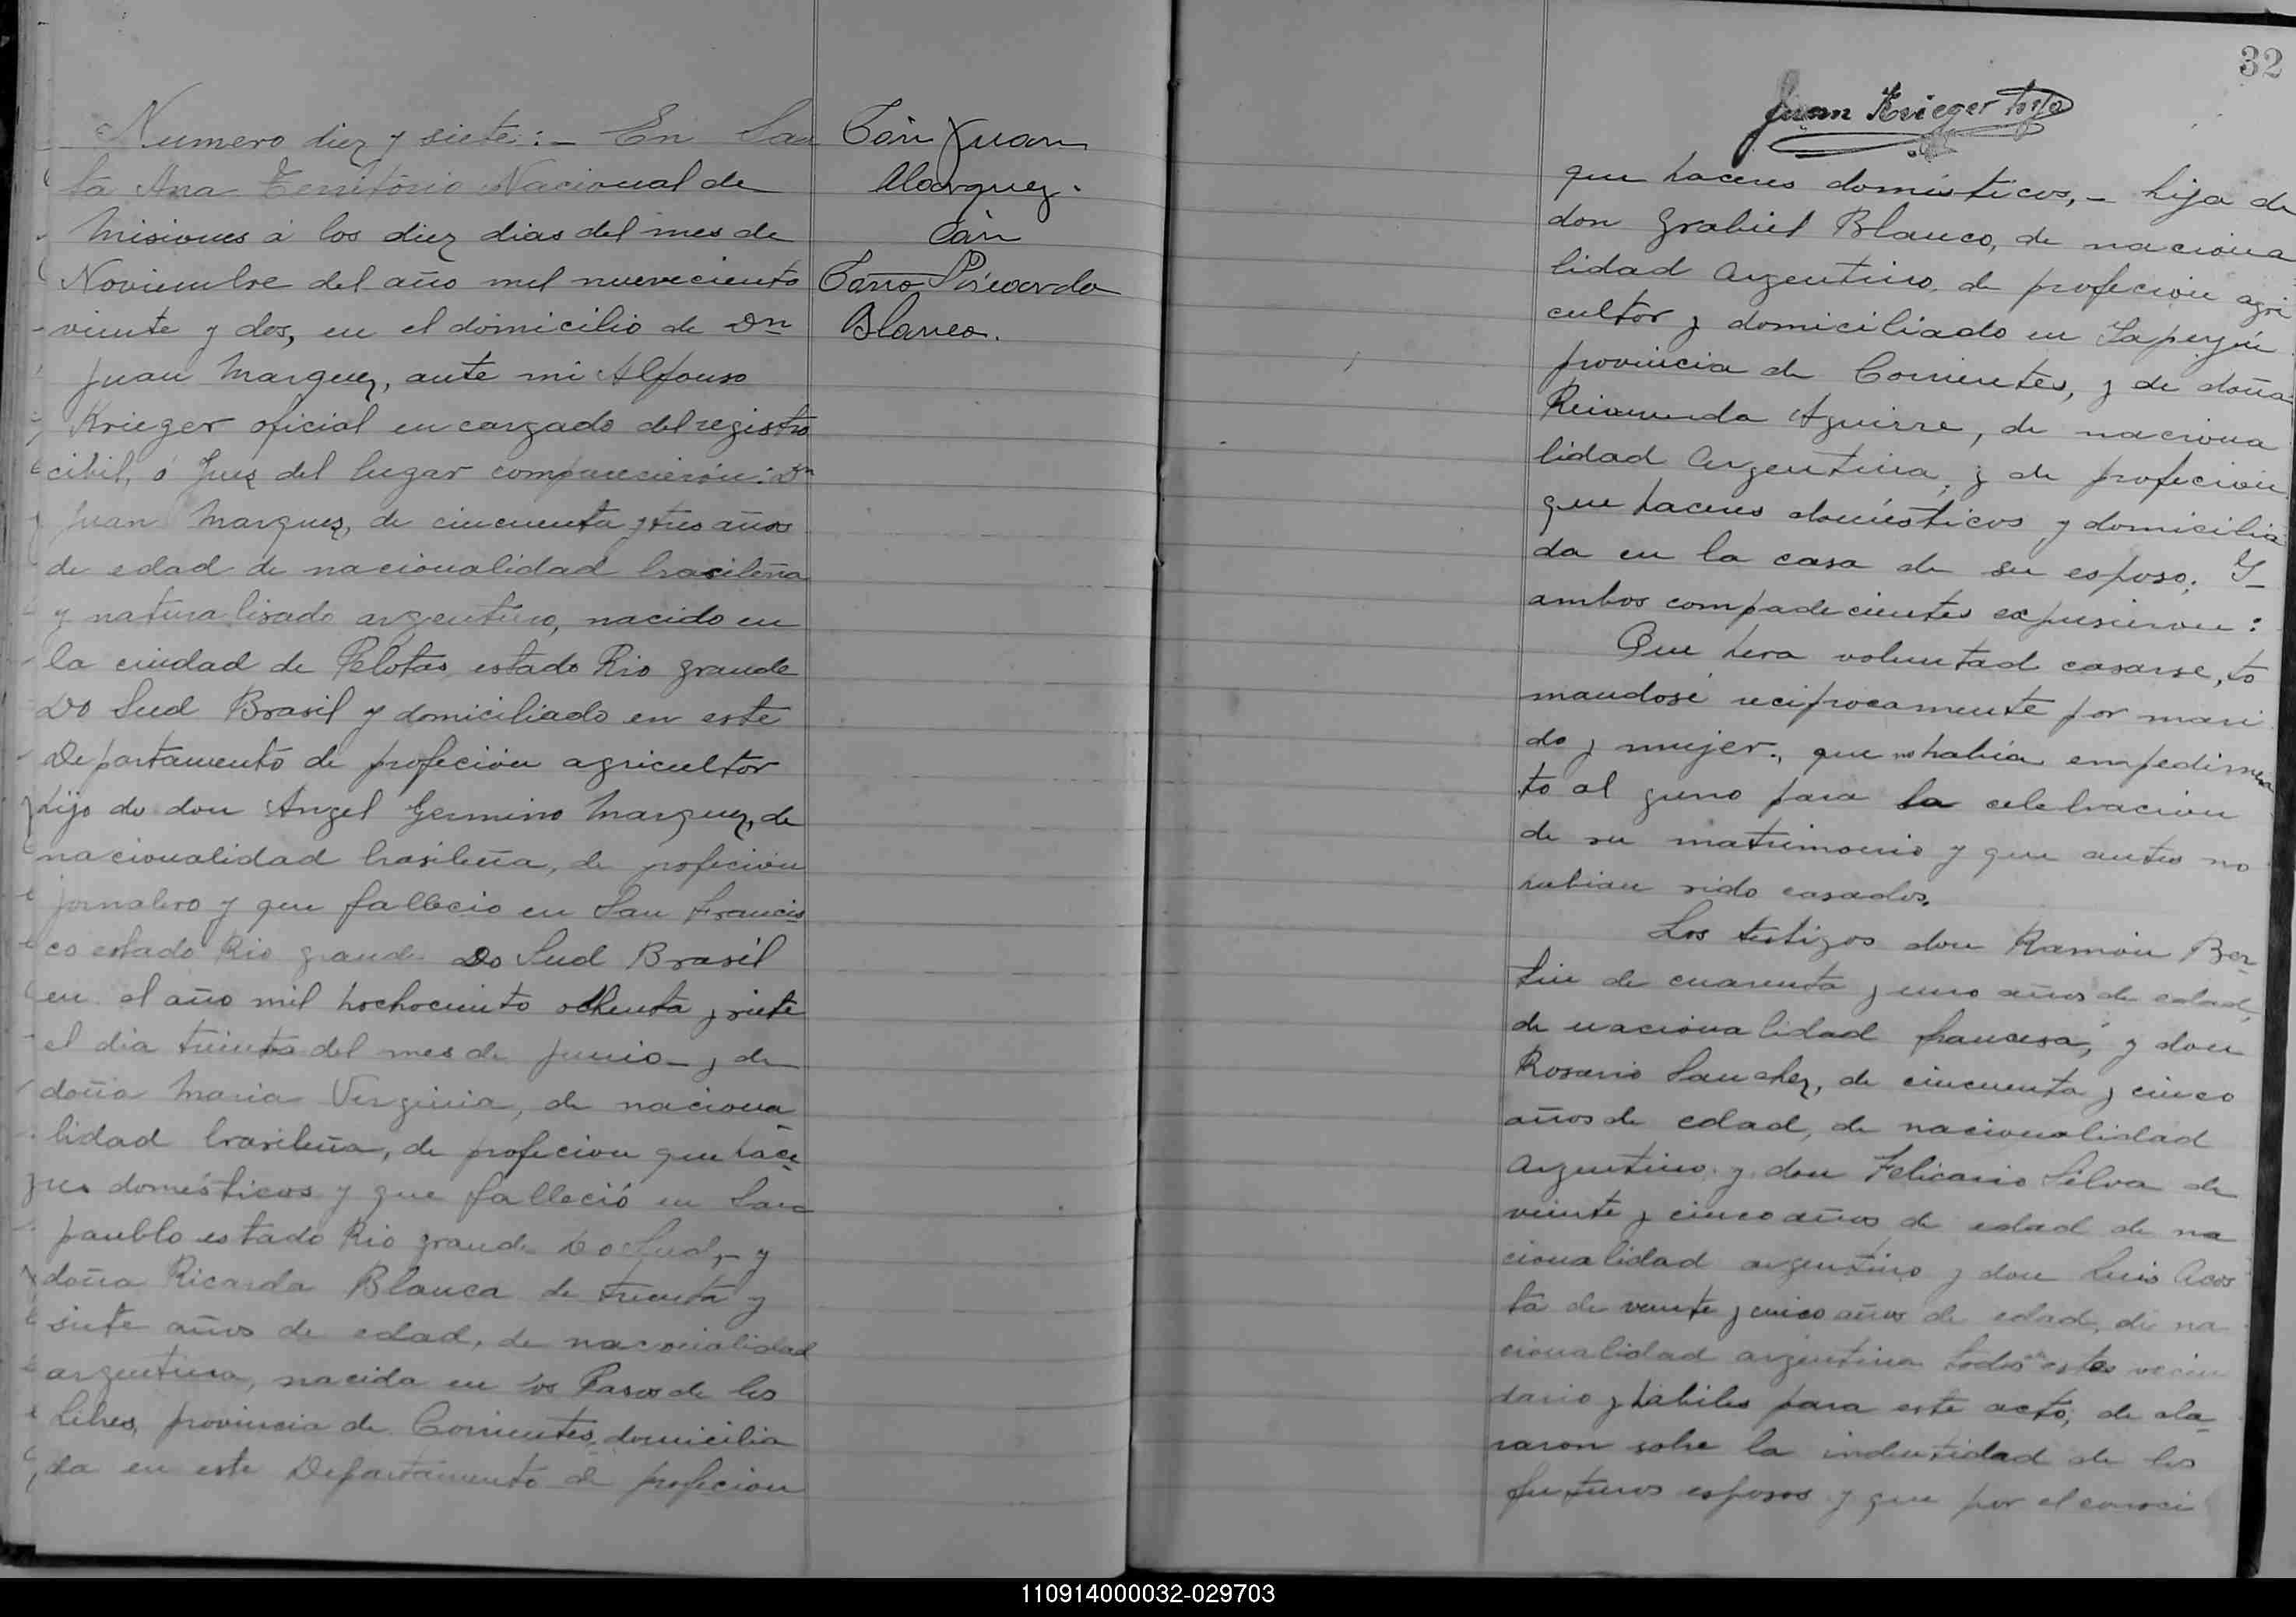 Numero diez y siete:- En San
ta Ana Territorio Nacional de
Misiones á los diez dias del mes de
Noviembre del año mil nueveciento
veinte y dos, en el domicilio de Dn
Juan Marquez, ante mi Alfonso
Krieger oficial encargado del registro
cibil, ó Juez del lugar comparecierón: Dn
Juan Marquez, de cincuenta y tres años
de edad de nacionalidad brasileña
y naturalisado argentino, nacido en
la ciudad de Pelotas estado Rio grande
Do Sud Brasil y domiciliado en este
Departamento de profeción agricultor
hijo de don Angel Germino Marquez, de
nacionalidad brasileña, de profeción
jornalero y que fallecio en San Francis
co estado Rio grande Do Sud Brasil
en el año mil hochociento ochenta y siete
el dia treinta del mes de junio- y de
doña Maria Verginia, de naciona
lidad brasileña, de profecion que hace
res domésticos y que falleció en San
paublo estado Rio grande Do Sud,- y
doña Ricarda Blanca de treinta y
siete años de edad, de nacionalidad
argentina, nacida en los Pasos de los
Libres, provincia de Corrientes, domicilia
da en este Departamento de profecion
Con Juan
Marquez.
Con
Blanco.
32
Juan Krieger hijo
que haceres domésticos,- hija de
don Grabiel Blanco, de naciona
lidad Argentino, de profecion agri
cultor y domiciliado en Yapeyú
provincia de Corrientes, y de doña
Reimunda Aguirre, de naciona
lidad Argentina, y de profecion
que haceres domésticos y domicilia
da en la casa de su esposo; Y
ambos compadecientes expusieron:
Que hera voluntad casarse, to
mandosé reciprocamente por mari
do y mujer., que no habia empedimen
to al guno para la celebracion
de su matrimonio y que antes no
habian sido casados.
Los testigos don Ramón Ber
tin de cuarenta y uno años de edad,
de nacionalidad francesa, y don
Rosario Sanchez, de cincuenta y cinco
años de edad, de nacionalidad
Argentino y don Felicario Silva de
veinte y cinco años de edad de na
cionalidad argentino y don Luis Acos
ta de veinte y cinco años de edad, de na
cionalidad argentina todos de este vecin
dario y habiles para este acto, de cla
raron sobre la indentidad de los
futuros esposos y que por el conoci
110914000032-029703